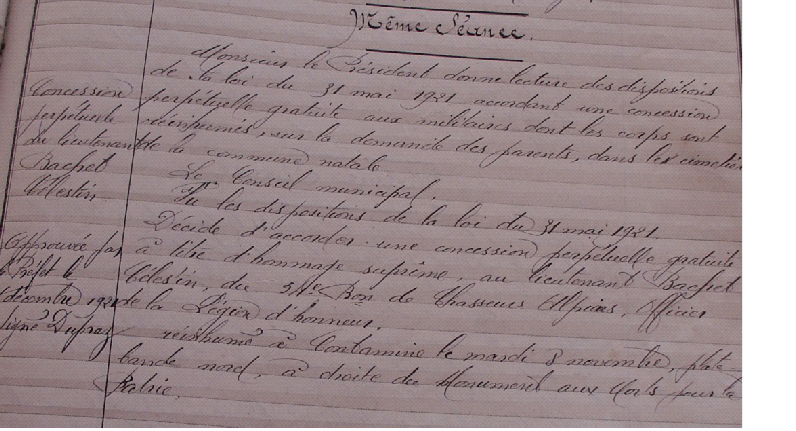 Même Séance.
Monsieur le Président donne lecture des dispositions
de la loi du 31 mai 1921 accordant une concession
perpétuelle gratuite aux militaires dont les corps sont
réinhumés, sur la demande des parents, dans les cimetiè
de la commune natale
Le Conseil municipal.
Vu les dispositions de la loi du 31 mai 1921.
Décide d'accorder une concession perpétuelle gratuite
à titre d'hommage suprême, au lieutenant Bachet
Célestin, du 51e Bon de Chasseurs Alpins, Officier
de la Légion d'honneur.
réinhumé à Contamine le mardi 8 novembre, plate-
bande nord, à droite du Monument aux Morts pour la
Patrie.
Concession
perpétuelle
du lieutenant
Bachet
Célestin
Approuvée par
le Préfet le
décembre 1921
signé Dupraz